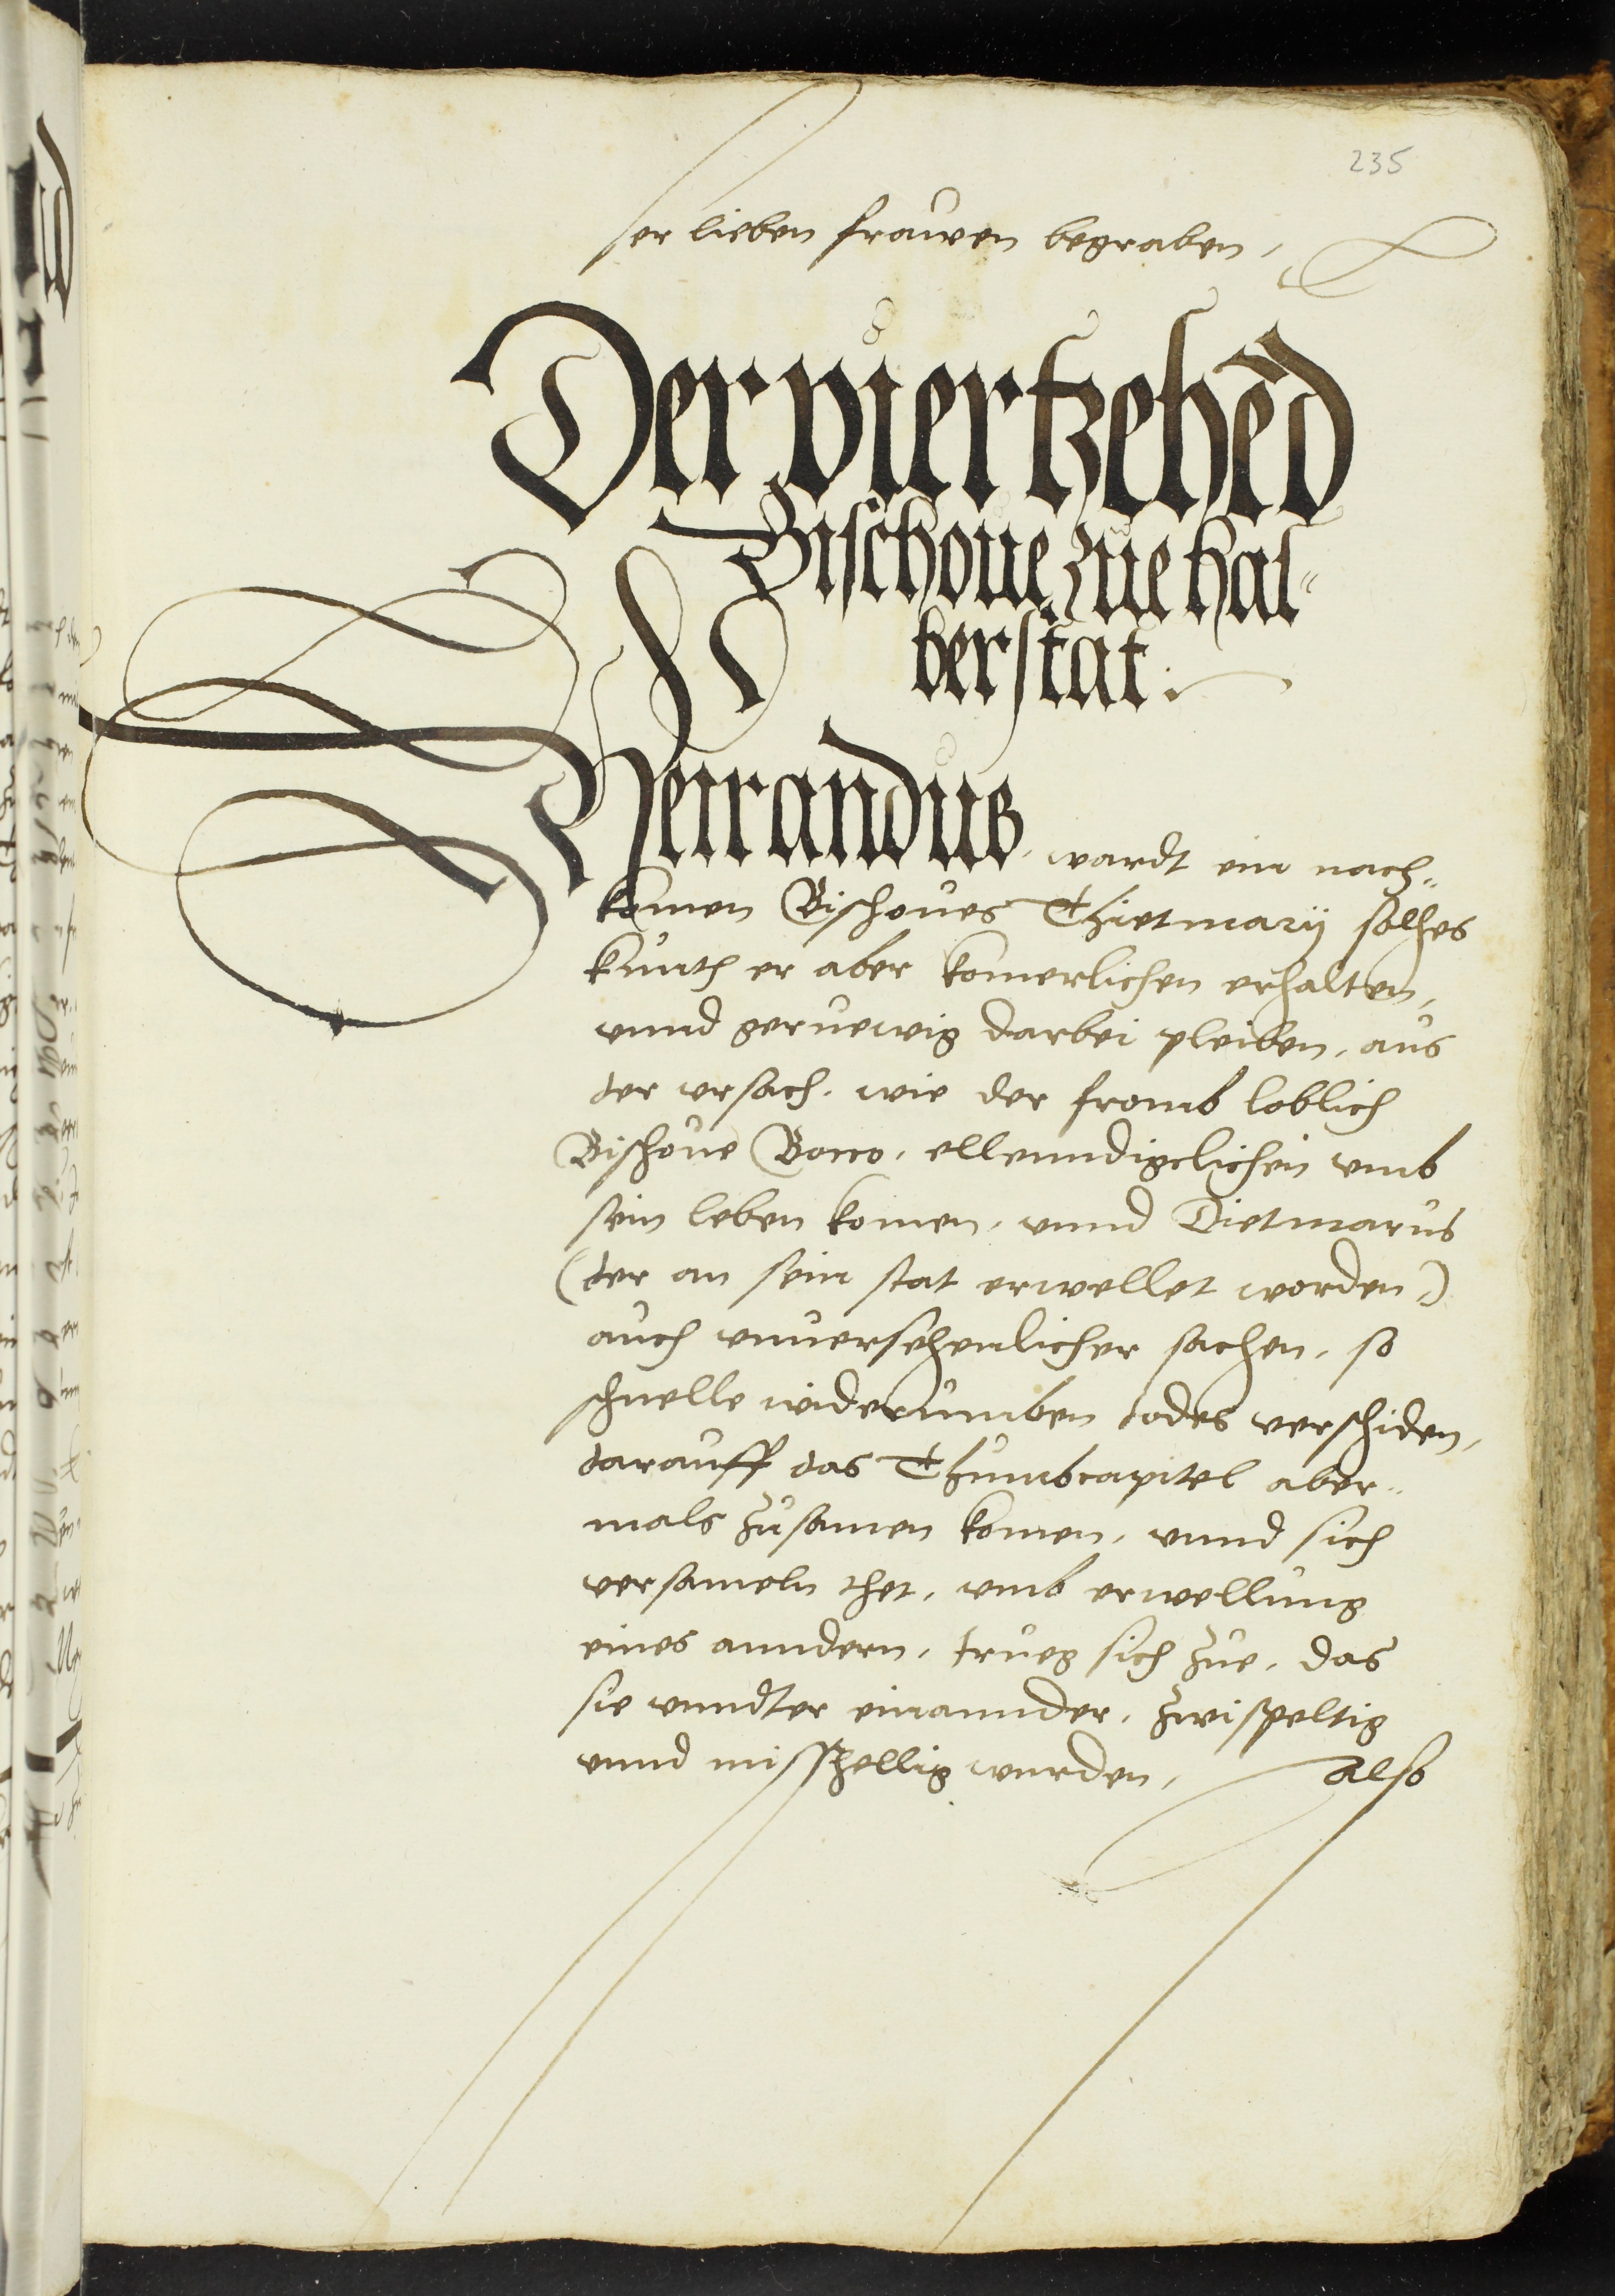 235
ser lieben frauwen begraben,
Der viertzehēd
Bischoue zue Hal-
berstat.
Herrandus, wardt ein nach-
komen Bischoues Thietmarij solhes
kunth er aber komerlichen erhalten,
vnnd geruewig darbei pleiben, aus
der vrsach, wie der fromb loblich
Bischoue Bocco, ellenndigclichen vmb
sein leben komen, vnnd Dietmarus
(der an sein stat erwellet worden,)
auch vnuersehenlicher sachen, so
schnelle widerumben todes verschiden,
darauff das Thumbcapitel aber-
mals zusamen komen, vnnd sich
versameln thet, vmb erwellung
eines anndern, trueg sich zue, das
sie vnndter einannder, zwispeltig
vnnd misshellig wurden, also